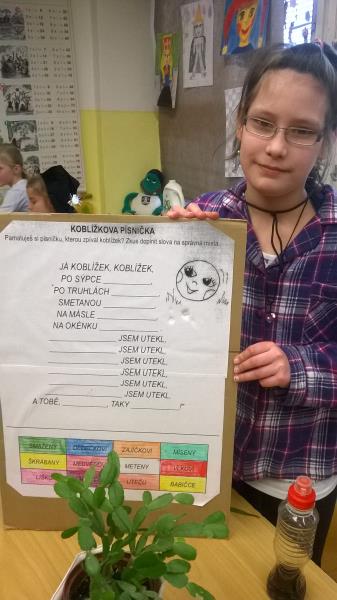 KOBLÍŽKOVA PÍSNIČKA
Pamatuješ si písničku, kterou zpíval koblížek? Zkus doplnit slova na správná místa.
JÁ KOBLÍŽEK, KOBLÍŽEK,
PO SÝPCE __________,
PO TRUHLÁCH __________,
SMETANOU __________,
NA MÁSLE __________,
NA OKÉNKU __________,
__________ JSEM UTEKL,
__________ JSEM UTEKL,
__________ JSEM UTEKL,
__________ JSEM UTEKL,
__________ JSEM UTEKL,
__________ JSEM UTEKL,
A TOBĚ, __________, TAKY __________!"
SMAŽENÝ DĚDEČKOVI ZAJÍČKOVI MÍSENÝ
ŠKRABANÝ MEDVĚDOVI METENÝ VLKOVI
UTEČU BABIČCE